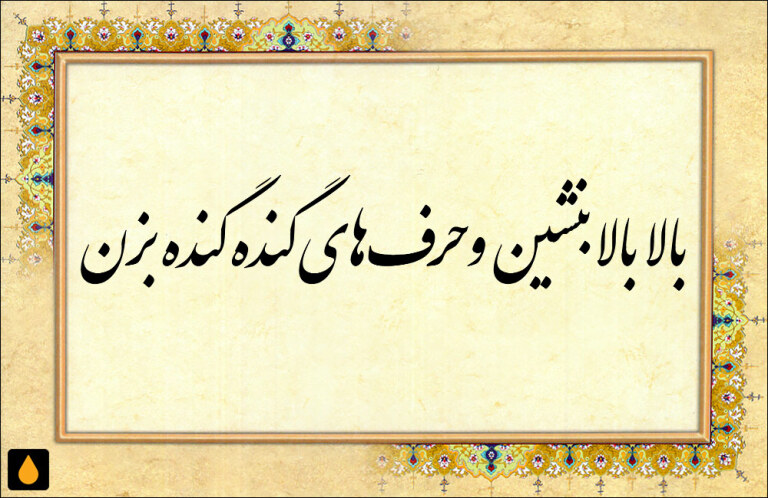 بالا بالا بنشین و حرف‌های گنده گنده بزن